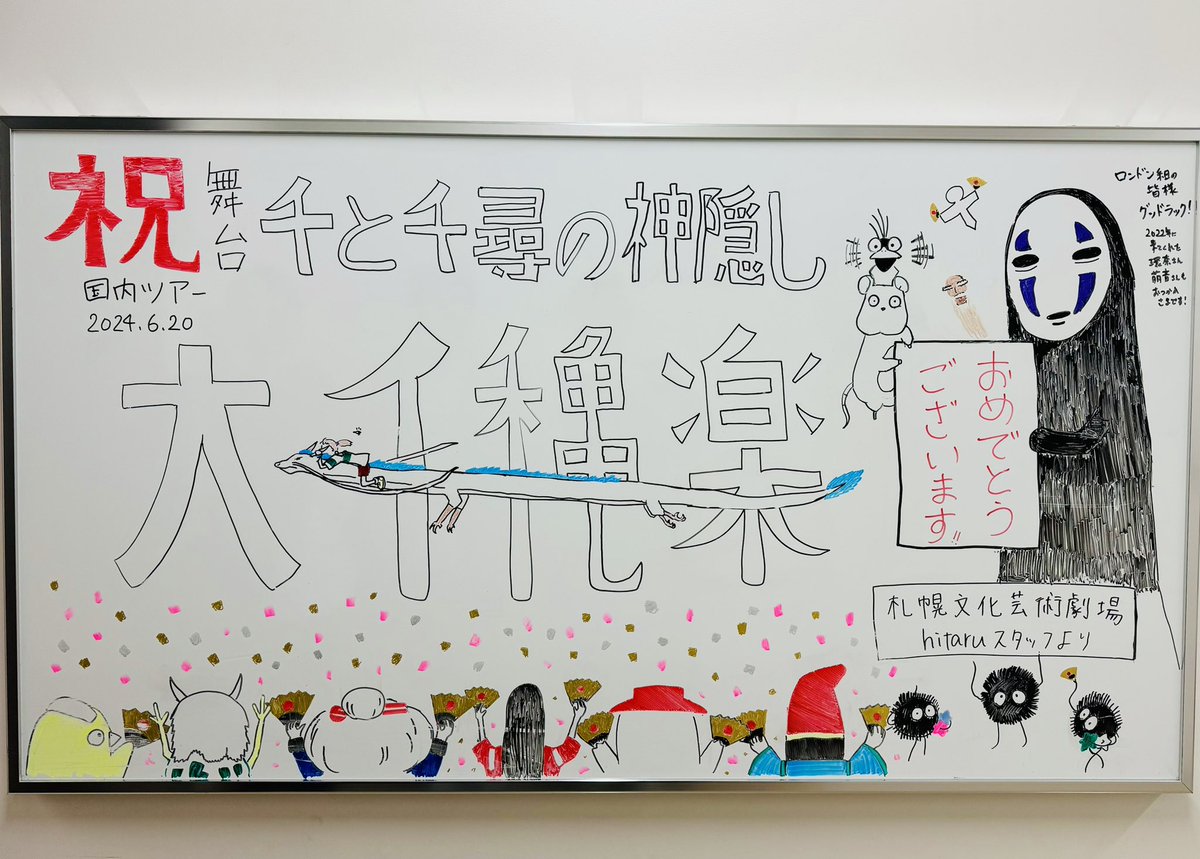 祝
舞台
千と千尋の神隠し
国内ツアー
2024.6.20
大千穐楽
おめでとう
ございます!!
ロンドン組の
皆様
グッドラック!
2022年に
来てくれた
環奈さん
萌音さんも
おつかれ
さまです!
札幌文化芸術劇場
hitaruスタッフより